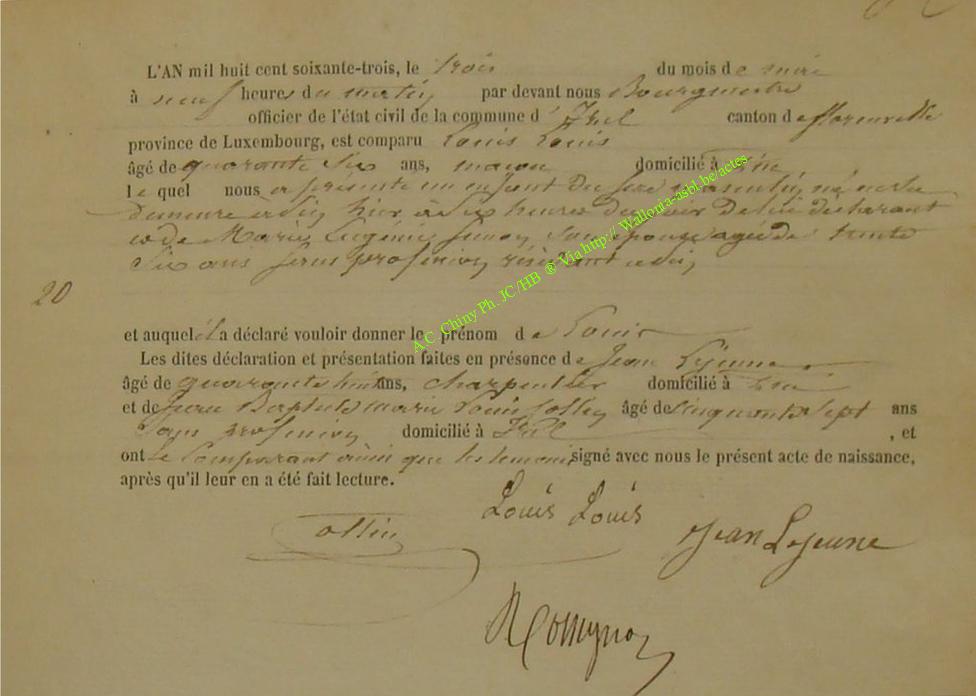 L'AN mil huit cent soixante-trois, le trois du mois de mai
à neuf heures du matin par devant nous Bourgmestre
officier de l'état civil de la commune d' Izel canton de florenville
province de Luxembourg, est comparu Louis Louis
âgé de quarante six ans, maçon domicilié à
le quel nous a présenté un enfant du sexe masculin, né en sa
demeure hier, à six heures du soir de lui déclarant
et de Marie Eugénie son épouse agée de trente
six ans sans profession, résidant
20
et auquel il a déclaré vouloir donner le prénom de Louis
Les dites déclaration et présentation faites en présence de Jean Lejeune
âgé de quarante huit ans, charpentier domicilié à
et de Jean Baptiste marie Louis Collin âgé de cinquante sept ans
sans profession domicilié à Izel , et
ont le comparant ainsi que les temoins signé avec nous le présent acte de naissance,
après qu'il leur en a été fait lecture.
Collin Louis Louis Jean Lejeune
A.C. Chiny Ph. JC/HB ® Via http://Wallonia-asbl.be/actes